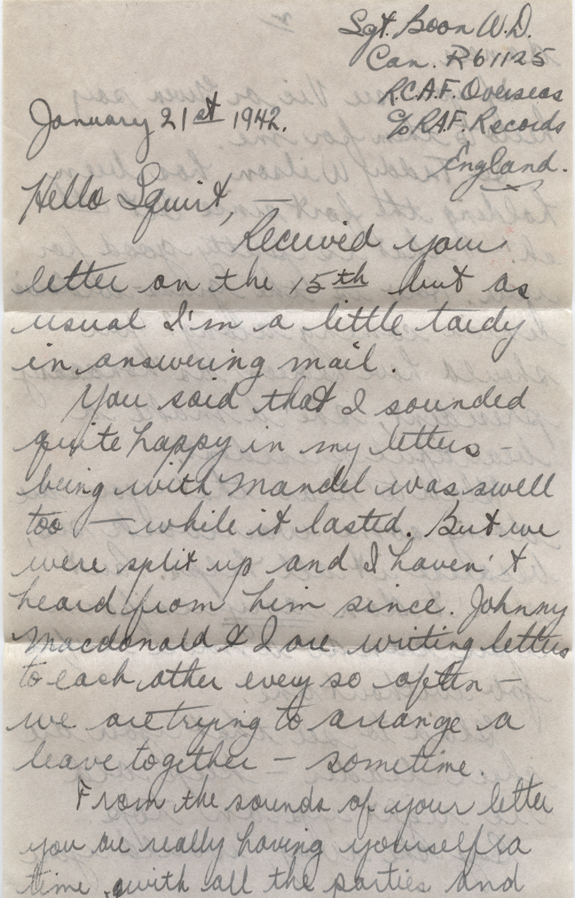 Sgt. Boon W.D.
Can. R61125
R.C.A.F. Overseas
c/o RAF. Records
England.
January 21st 1942.
Hello Squirt,
Received your
letter on the 15th but as
usual I'm a little tardy
in answering mail.
You said that I sounded
quite happy in my letters
being with Mandel was swell
too — while it lasted. But we
were split up and I haven't
heard from him since. Johnny
Macdonald & I are writing letters
to each other every so often —
we are trying to arrange a
leave together — sometime.
From the sounds of your letter
you are really having yourself a
time, with all the parties and